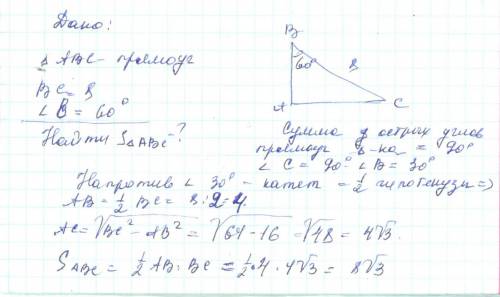 Дано:
△ ABC - прямоуг
BC = 8
∠ B = 60°
Найти S△ABC?
B
60°
8
A
C
Сумма 2 острых углов
прямоуг △-ка = 90°
∠ C = 90° - ∠ B = 30°
Напротив ∠ 30° - катет = 1/2 гипотенузы =>
AB = 1/2 BC = 8 : 2 = 4.
AC = √BC² - AB² = √64 - 16 = √48 = 4√3.
S ABC = 1/2 AB · BC = 1/2 · 4 · 4√3 = 8√3